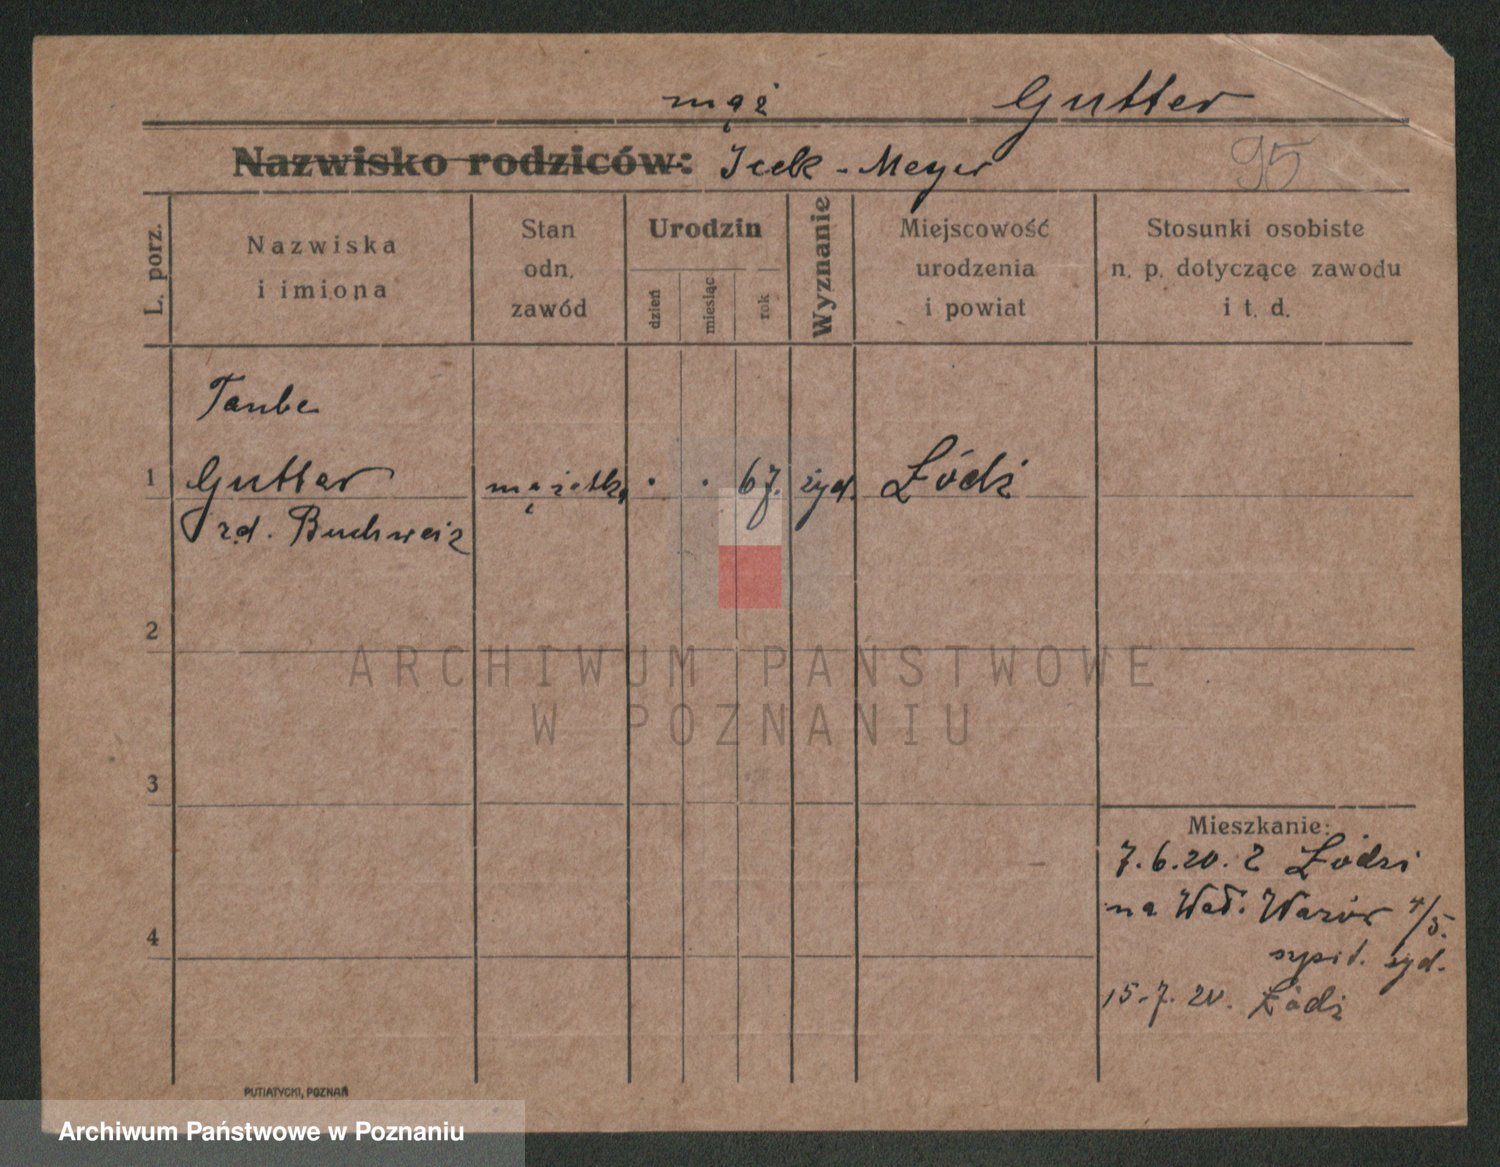 mąż Gutter
Nazwisko rodziców: Icek - Meyer
95
L. porz.
Nazwiska
i imiona
Stan
odn.
zawód
Urodzin
dzień
miesiąc
rok
Wyznanie
Miejscowość
urodzenia
i powiat
Stosunki osobiste
n. p. dotyczące zawodu
i t. d.
Taube
1 Gutter mężatka . . 67. żyd. Łódź
zd. Buchweiz
2
ARCHIWUM PAŃSTWOWE
W POZNANIU
3
Mieszkanie:
7.6.20. z Łodzi
na Wał. Wazów 4/5.
szpit. żyd.
4
15.7.20. Łódź
PUTIATYCKI, POZNAŃ
Archiwum Państwowe w Poznaniu